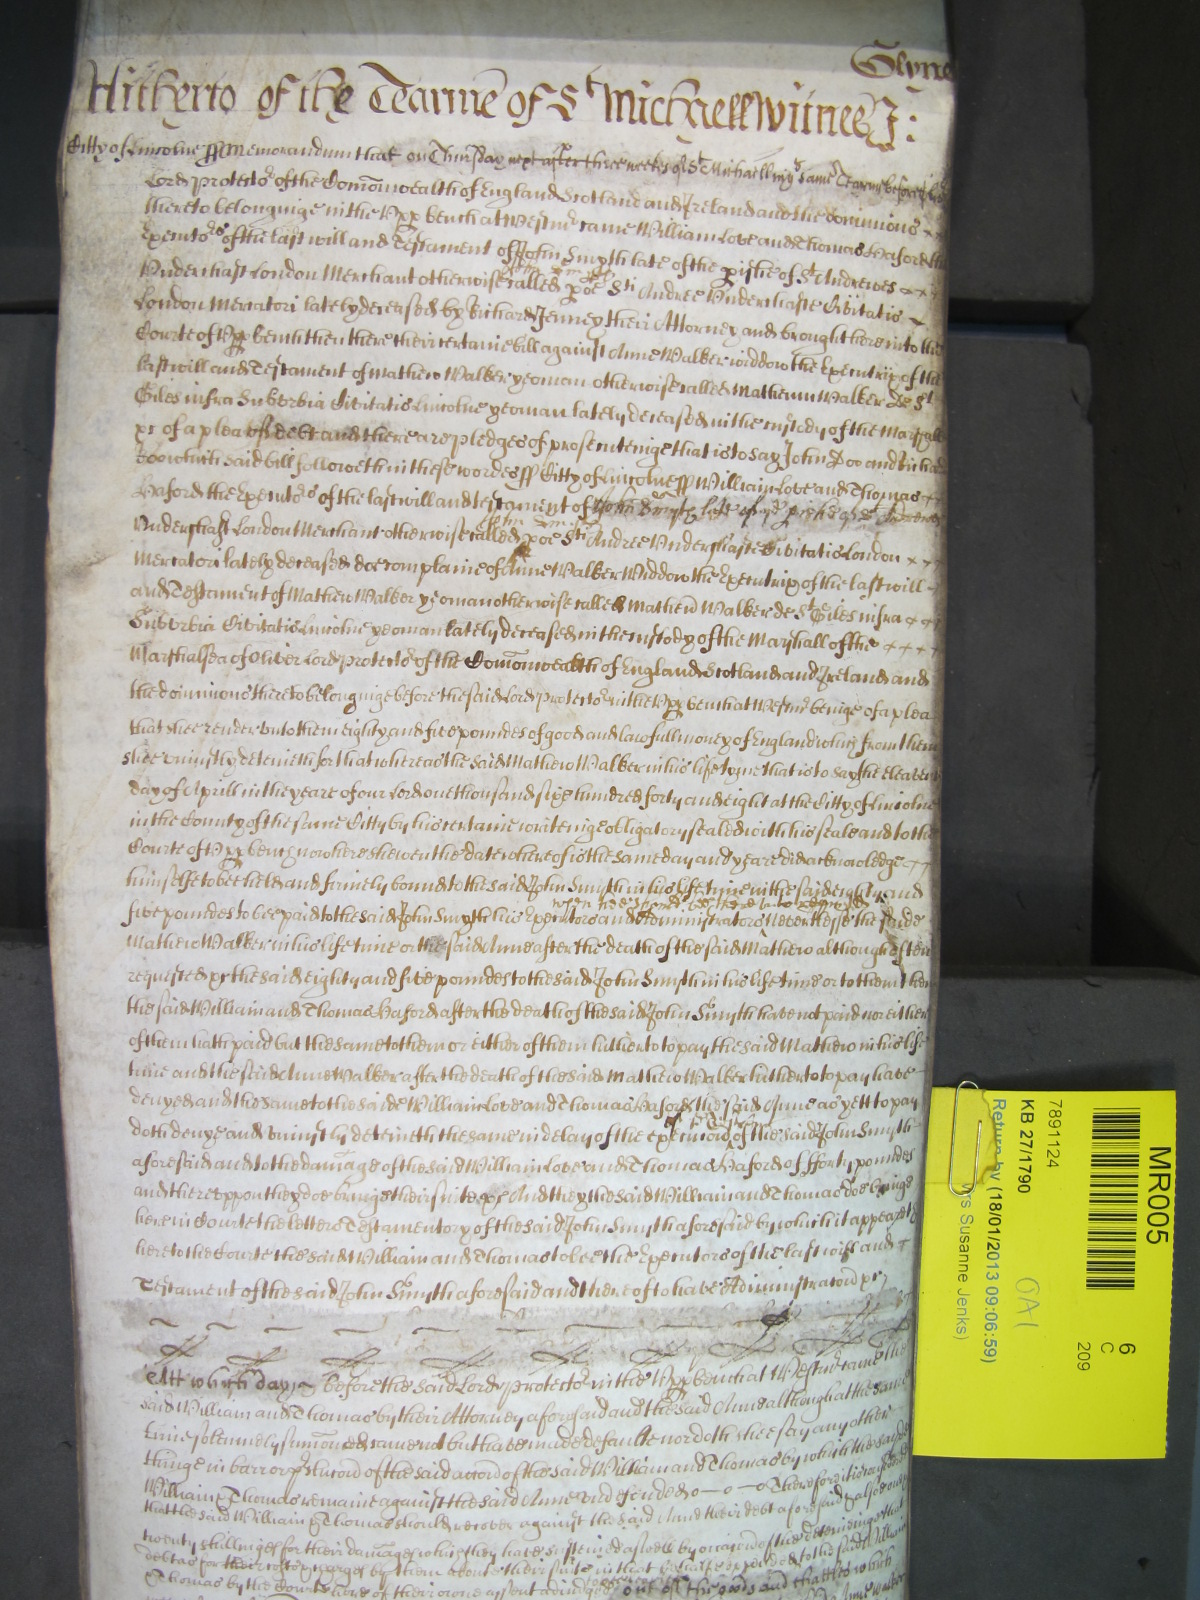 Glynne
Hitherto of the Tearme of St Michaell Witnes J:
Citty of Lincolne ss Memorandum that on Thursday next after three weekes of St Michaell this same Tearme before the
Lord protector of the Comonwealth of England Scotland and Ireland and the dominions
thereto belonginge in the Upp bench at Westmr came William Love and Thomas Haford the
Executors of the last will and Testament of John Smyth late of the pishe of St Andrewes
Undershaft London Merchant otherwise called John Smyth poe Sti Andree Undershafte Civitatis
London Mercatori lately deceased by Richard Jenney their Attorney and brought here into the
Courte of Upp bench then there their certaine bill against Anne Walker widdow the Executrix of the
last will and Testament of Mathew Walker yeoman otherwise called Mathewm Walker de St
Giles infra Suborbia Civitatis Lincolne yeoman lately deceased in the custody of the Marshall
xc of a plea of debt and there are pledges of prosecuteinge that is to say John Doo and Richard
Roo which said bill followeth in these wordes ss Citty of Lincolne ss William Love and Thomas
Haford the Executors of the last will and testament of John Smyth late of ye pishe of St Andrewes
Undershaft London Merchant otherwise called John Smyth poe Sti Andree Undershafte Civitatis London
Mercatori lately deceased doe complaine of Anne Walker Widdow the Executrix of the last will
and Testament of Mathew Walker yeoman otherwise called Mathew Walker de St Giles infra
Suborbia Civitatis Lincolne yeoman lately deceased in the custody of the Marshall of the
Marshalsea of Oliver Lord protector of the Comonwealth of England Scotland and Ireland and
the dominions thereto belonginge before the said Lord protector in the Upp bench at Westmr beinge of a plea
that shee render unto them eighty and five poundes of good and lawfull money of England which from them
shee uniustly deteineth for that whereas the said Mathew Walker in his life tyme that is to say the eleaventh
day of Aprill in the yeare of our Lord one thousand six hundred forty and eight at the Citty of Lincolne
in the County of the same Citty by his certaine writeinge obligatory sealed with his seale and to the
Courte of Upp bench now here shewen the date whereof is the same day and yeare did acknowledge
himselfe to bee held and firmely bound to the said John Smyth in his life time in the said eighty and
five poundes to bee paid to the said John Smyth his Executors and Administrators when hee should bee thereunto required Neverthelesse the saide
Mathew Walker in his life time or the said Anne after the death of the said Mathew although often
requested xc the said eighty and five poundes to the said John Smyth in his life time or to them then
the said William and Thomas Haford after the death of the said John Smyth have not paid nor either
of them hath paid but the same to them or either of them hitherto to pay the said Mathew in his life
time and the said Anne Walker after the death of the said Mathew Walker hitherto to pay have
denyed and the same to the saide William Love and Thomas Haford the said Anne as yett to pay
doth denye and uniustly deteineth the same in delay of the execucion of the said John Smyth
aforesaid and to the damage of the said William Love and Thomas Haford of fforty poundes
and thereuppon they doe bringe their suite xc And they the said William and Thomas doe bringe
here in Courte the letters Testamentory of the said John Smyth aforesaid by which it appeareth
here to the Courte the said William and Thomas to bee the Executors of the last will and
Testament of the said John Smyth aforesaid and thereof to have Administracion xc
Att which day before the said Lord protector in the Upp bench at Westmr came the
said William and Thomas by their Attorney aforesaid and the said Anne although at the same
time solemnely sumoned came not but have made default nor doth shee say any other
thinge in barr or of the said accion of the said William and Thomas by which the saide
William & Thomas remaine against the said Anne undefended Therefore it is considered
that the said William & Thomas should recover against the said Anne their debt aforesaid & also
twenty shillinges for their damages which they have susteined aswell by occasion of the deteininge that
debt as for their costes & charges by them about their suite in that behalfe expended to the said William
& Thomas by the Courte here of their owne assent adiudged out of the goods and chattles which
MR005
7891124
KB 27/1790
Return by (18/01/2013 09:06:59)
Mrs Susanne Jenks)
6
C
209